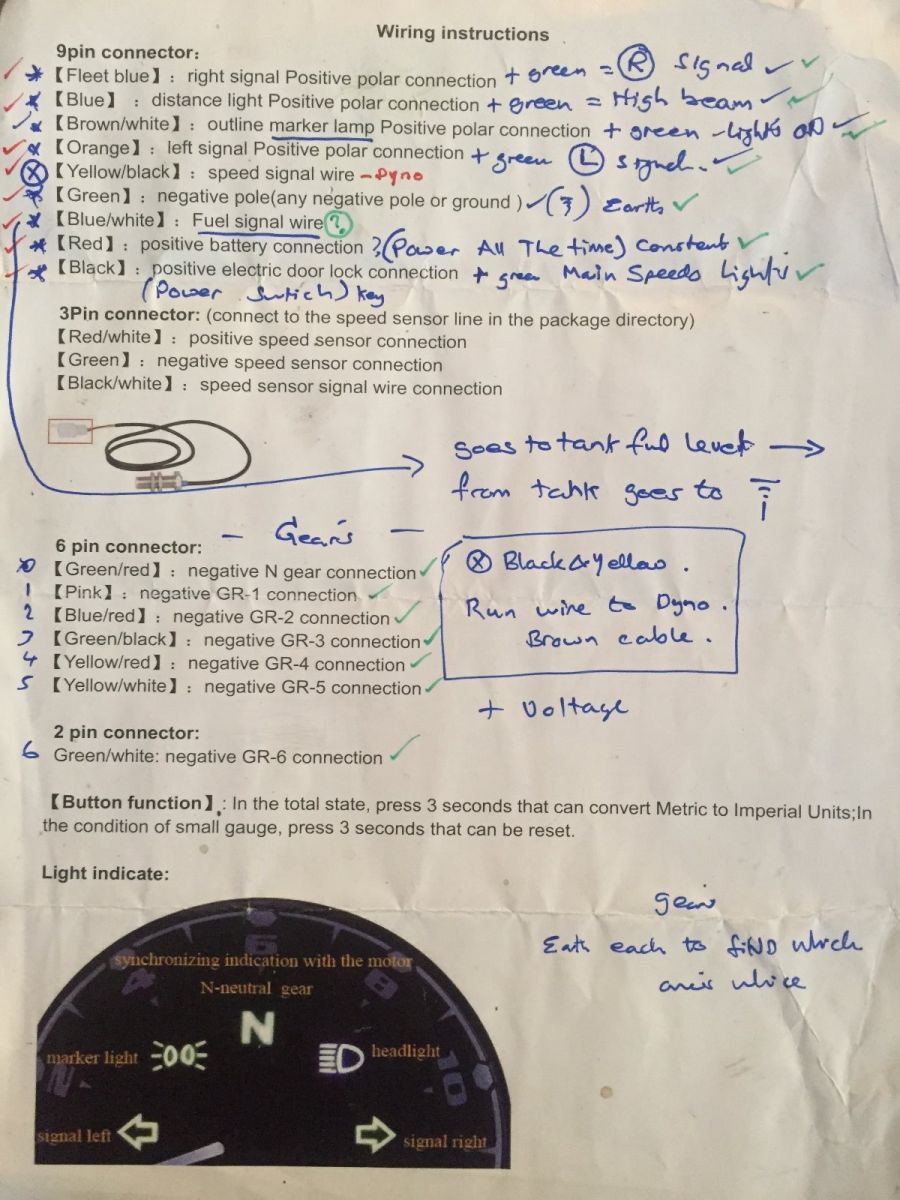 Wiring instructions
9pin connector:
【Fleet blue】: right signal Positive polar connection + green = Ⓡ Signal ✓ ✓
【Blue】 : distance light Positive polar connection + green = High beam ✓ ✓
【Brown/white】: outline marker lamp Positive polar connection + green - Lights on ✓
【Orange】: left signal Positive polar connection + green Ⓛ signal. ✓
ⓧ 【Yellow/black】: speed signal wire - Dyno
【Green】: negative pole(any negative pole or ground ) ✓ Earth ✓
【Blue/white】: Fuel signal wire ?
【Red】: positive battery connection ? (Power All The time) Constant ✓
【Black】: positive electric door lock connection + green Main Speedo Light ✓
(Power Switich) key
3Pin connector: (connect to the speed sensor line in the package directory)
【Red/white】: positive speed sensor connection
【Green】: negative speed sensor connection
【Black/white】: speed sensor signal wire connection
goes to tank fuel level →
from tank goes to
- Gear's -
6 pin connector:
0 【Green/red】: negative N gear connection ✓
1 【Pink】: negative GR-1 connection ✓
2 【Blue/red】: negative GR-2 connection ✓
3 【Green/black】: negative GR-3 connection ✓
4 【Yellow/red】: negative GR-4 connection ✓
5 【Yellow/white】: negative GR-5 connection ✓
ⓧ Black & Yellow .
Run wire to Dyno .
Brown cable .
+ Voltage
2 pin connector:
6 Green/white: negative GR-6 connection ✓
【Button function】: In the total state, press 3 seconds that can convert Metric to Imperial Units;In
the condition of small gauge, press 3 seconds that can be reset.
Light indicate:
gears
Eath each to find which
synchronizing indication with the motor
N-neutral gear
N
marker light
headlight
signal left
signal right
2
4
6
8
10